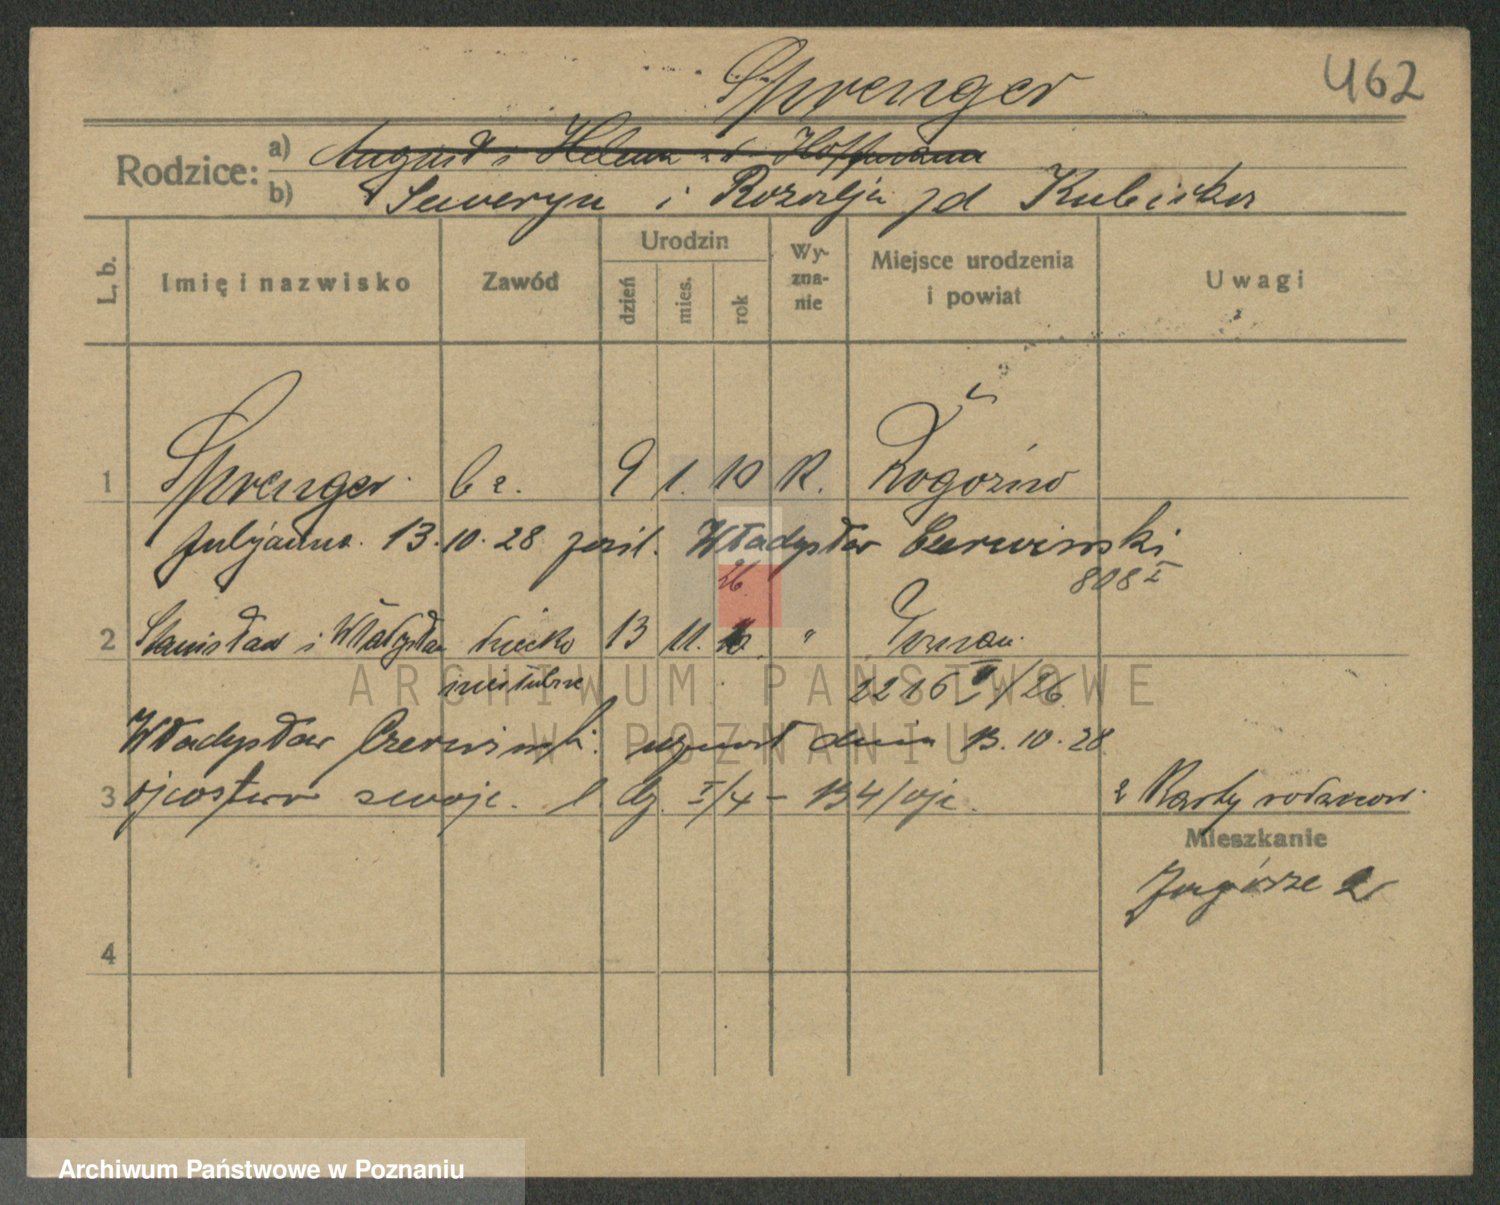 Sprenger 462
Rodzice:
a) August i Helena z d. Hoffmann
b) Seweryn i Rozalja zd Kubicka
L. b. Imię i nazwisko Zawód Urodzin dzień mies. rok Wy-zna-nie Miejsce urodzenia i powiat Uwagi
1 Sprenger bz. 9 1. 10 R. Rogoźno
Juljanna 13.10.28 zaśl. Władysław Czerwiński
808 I
26
2 Stanisław i Władysław dziecko 13 11. " Poznań
nieślubne 2216 /26
Władysław Czerwiński uznał dnia 13.10.28
3 ojcostwo swoje. I/4 - 134/
2 Karty
Mieszkanie
Zagórze 2
4
ARCHIWUM PAŃSTWOWE
W POZNANIU
Archiwum Państwowe w Poznaniu